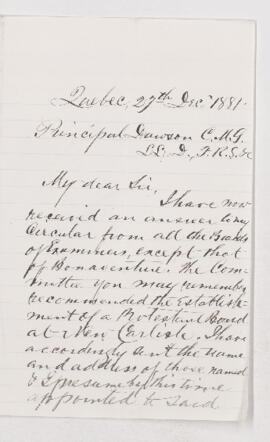 Quebec, 27th Dec 1881.
Principal Dawson C.M.G.
LL.D., F.R.S. &c
My dear Sir,
I have now
received an answer to my
Circular from all the Boards
of Examiners, except that
of Bonaventure. The Com-
mittee you may remember
recommended the establish-
ment of a Protestant Board
at New Carlisle. I have
accordingly sent the name
and address of those named
& I presume by this time
appointed to said